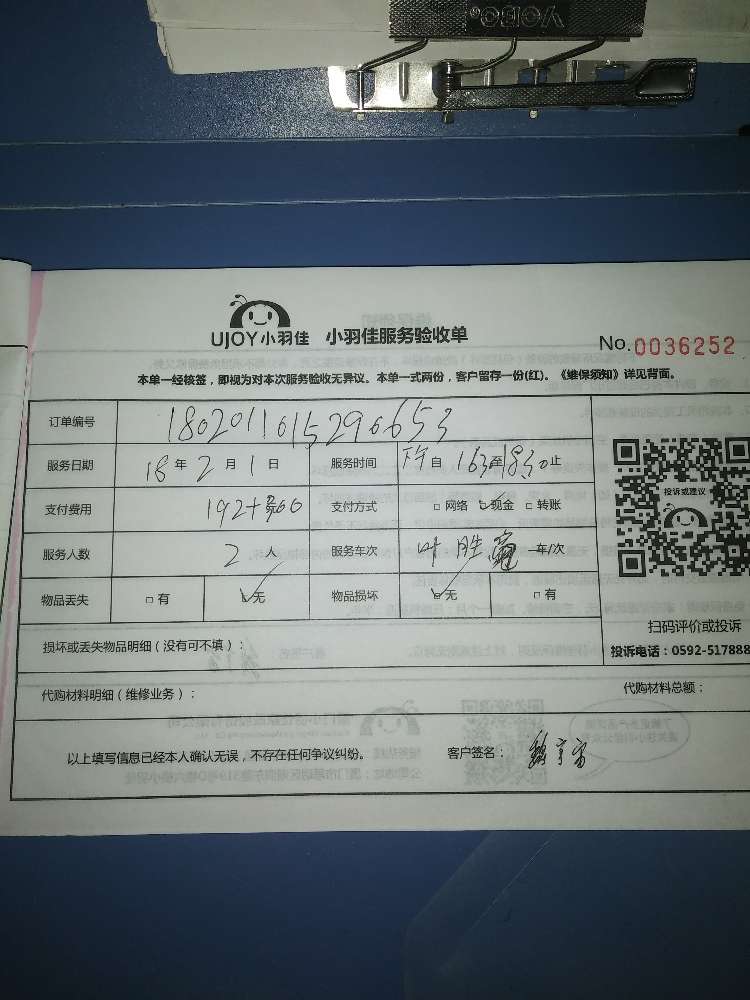 VOBO
UJOY小羽佳 小羽佳服务验收单
No.0036252
本单一经核签，即视为对本次服务验收无异议。本单一式两份，客户留存一份(红)。《维保须知》详见背面。
订单编号 1802011015290653
服务日期 18年2月1日 服务时间 下午自1630至1830止
支付费用 192+300 支付方式 □网络 ☑现金 □转账
服务人数 2人 服务车次 叶胜 车/次
物品丢失 □有 ☑无 物品损坏 ☑无 □有
投诉或建议
扫码评价或投诉
投诉电话：0592-517888
损坏或丢失物品明细（没有可不填）：
代购材料明细（维修业务）： 代购材料总额：
以上填写信息已经本人确认无误，不存在任何争议纠纷。 客户签名：